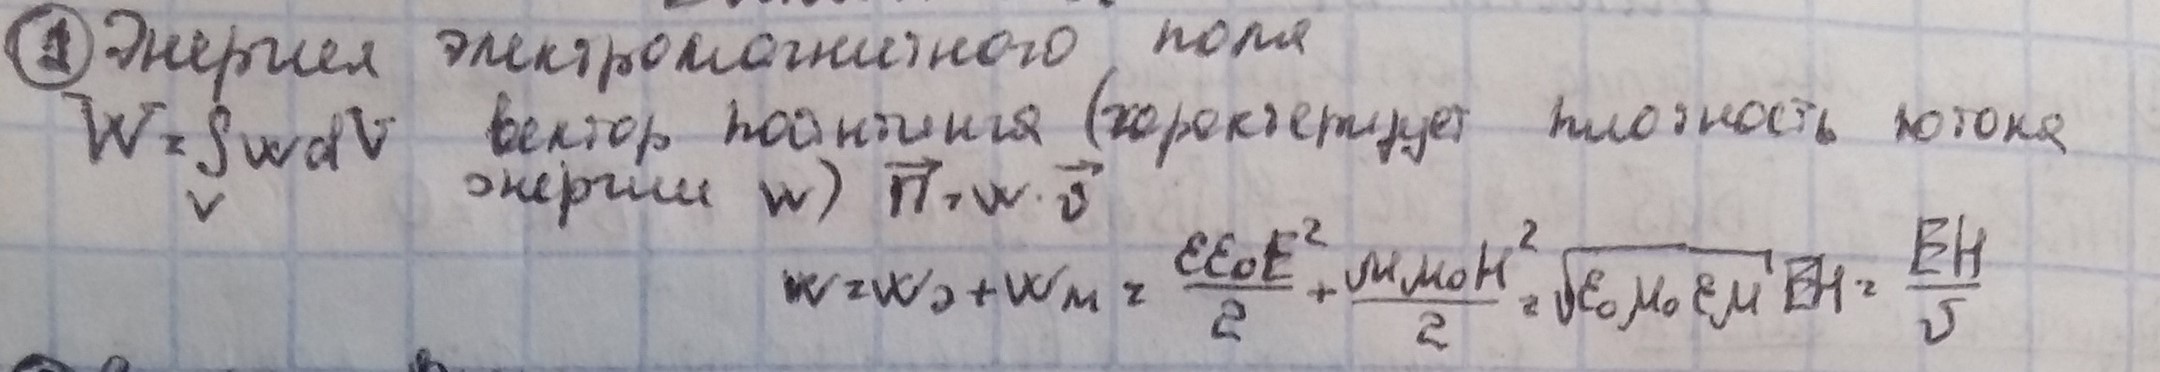 ① Энергия электромагнитного поля
W = ∫wdV вектор пойнтинга (характеризует плотность потока
V энергии w) П⃗ = w · υ⃗
w = wэ + wм = εε₀E²/2 + μμ₀H²/2 = √ε₀μ₀εμ EH = EH/υ